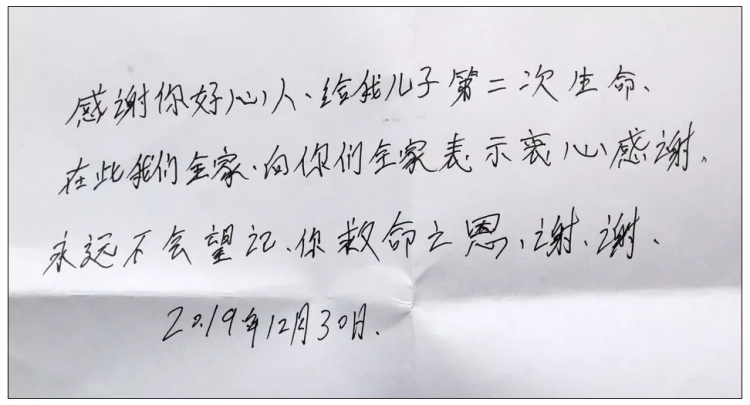 感谢你好心人、给我儿子第二次生命、
在此我们全家、向你们全家表示衷心感谢、
永远不会望记、你救命之恩、谢、谢、
2019年12月30日.